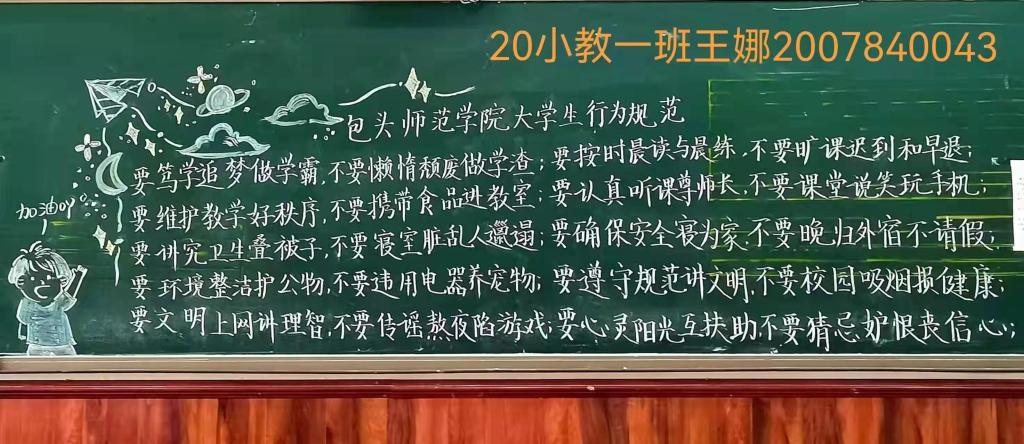 20小教一班王娜2007840043
包头师范学院大学生行为规范
要笃学追梦做学霸,不要懒惰颓废做学渣;要按时晨读与晨练,不要旷课迟到和早退;
要维护教学好秩序,不要携带食品进教室;要认真听课尊师长,不要课堂说笑玩手机;
要讲究卫生叠被子,不要寝室脏乱人邋遢;要确保安全寝为家,不要晚归外宿不请假;
要环境整洁护公物,不要违用电器养宠物;要遵守规范讲文明,不要校园吸烟损健康;
要文明上网讲理智,不要传谣熬夜陷游戏;要心灵阳光互扶助不要猜忌妒恨丧信心;
加油吖